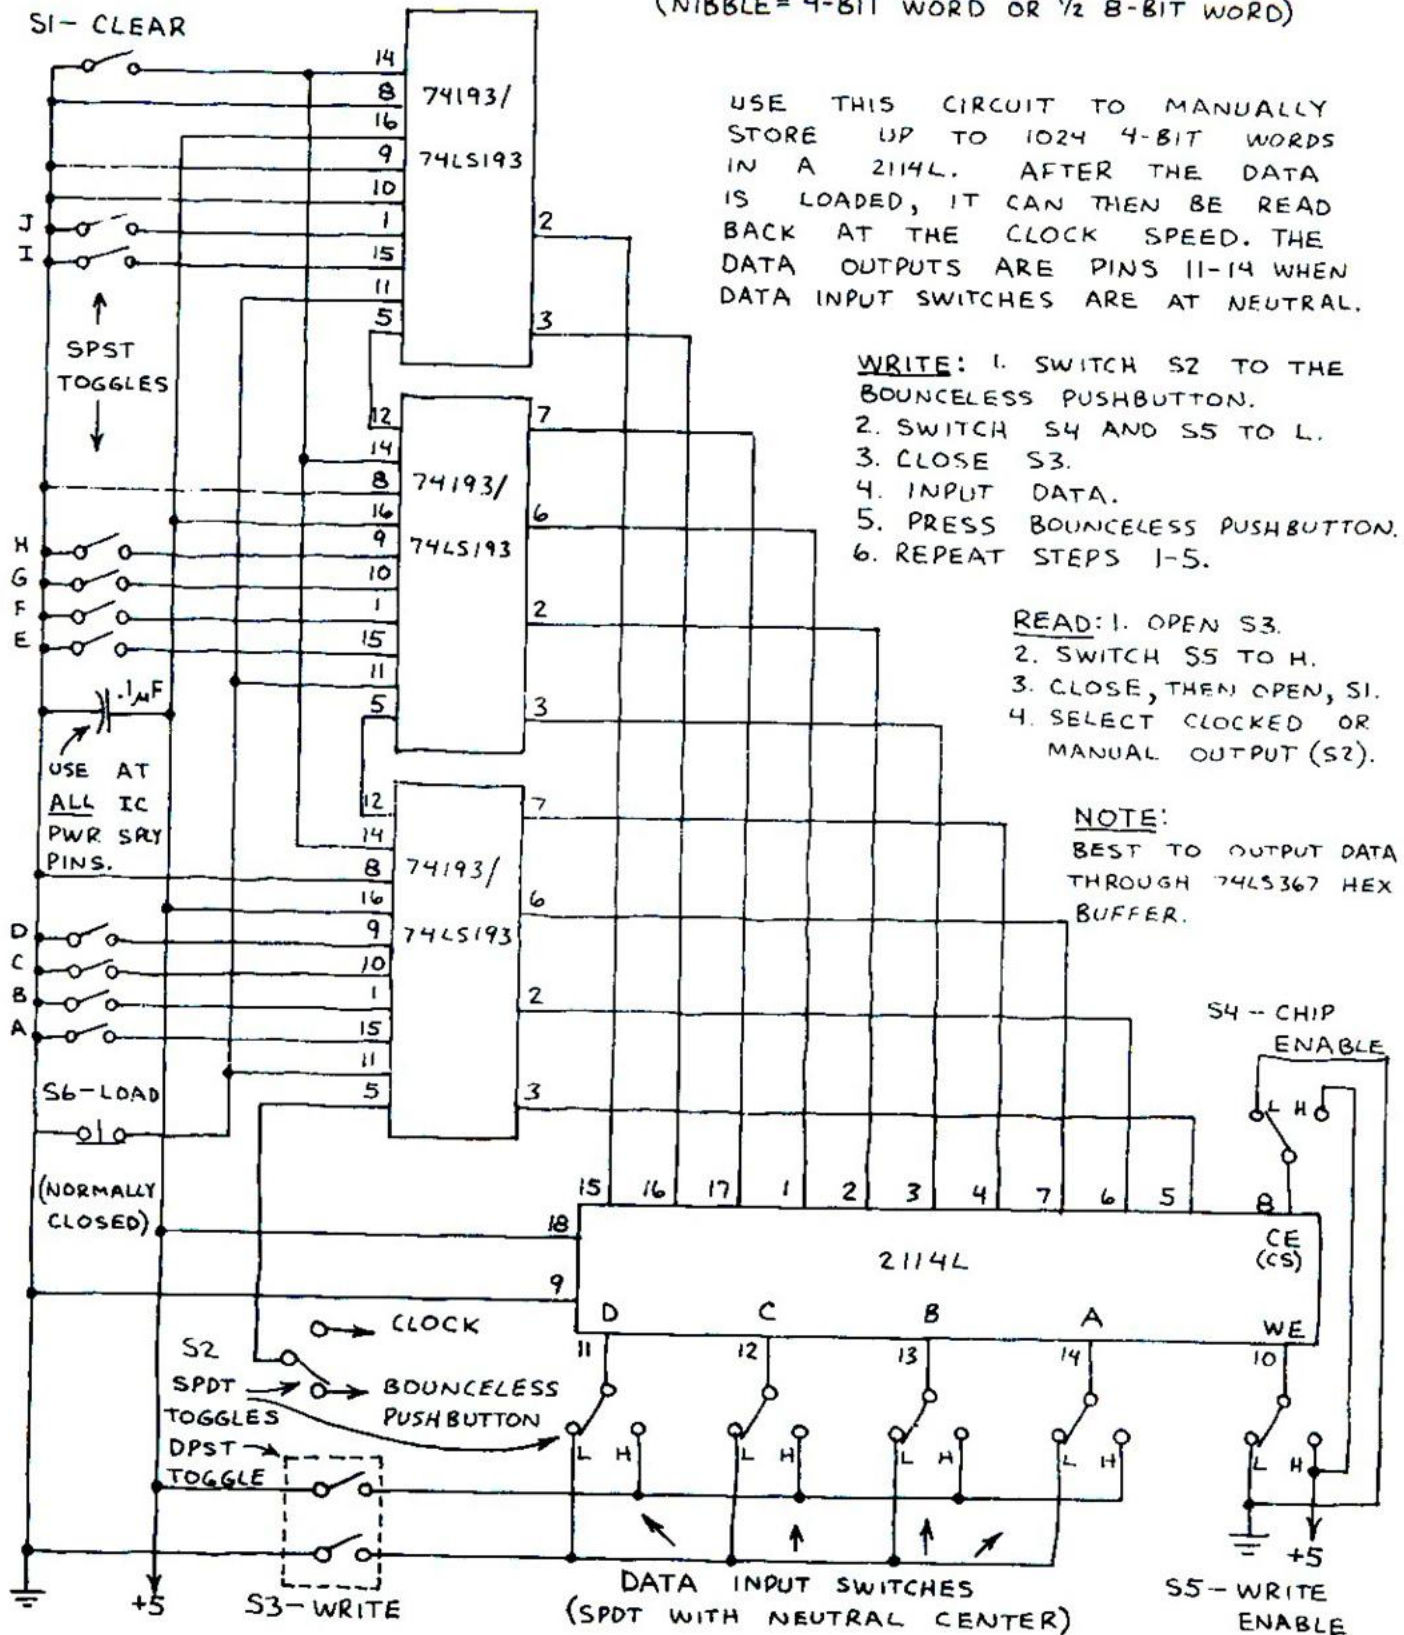 (NIBBLE = 4-BIT WORD OR 1/2 8-BIT WORD)
S1- CLEAR
USE THIS CIRCUIT TO MANUALLY
STORE UP TO 1024 4-BIT WORDS
IN A 2114L. AFTER THE DATA
IS LOADED, IT CAN THEN BE READ
BACK AT THE CLOCK SPEED. THE
DATA OUTPUTS ARE PINS 11-14 WHEN
DATA INPUT SWITCHES ARE AT NEUTRAL.
WRITE: 1. SWITCH S2 TO THE
BOUNCELESS PUSHBUTTON.
2. SWITCH S4 AND S5 TO L.
3. CLOSE S3.
4. INPUT DATA.
5. PRESS BOUNCELESS PUSHBUTTON.
6. REPEAT STEPS 1-5.
READ: 1. OPEN S3.
2. SWITCH S5 TO H.
3. CLOSE, THEN OPEN, S1.
4. SELECT CLOCKED OR
MANUAL OUTPUT (S2).
NOTE:
BEST TO OUTPUT DATA
THROUGH 74LS367 HEX
BUFFER.
14
8
16
9
10
1
15
11
5
74193/
74LS193
2
3
J
I
SPST
TOGGLES
12
14
8
16
9
10
1
15
11
5
74193/
74LS193
7
6
2
3
H
G
F
E
.1μF
USE AT
ALL IC
PWR SPLY
PINS.
12
14
8
16
9
10
1
15
11
5
74193/
74LS193
7
6
2
3
D
C
B
A
S6-LOAD
(NORMALLY
CLOSED)
S4 -- CHIP
ENABLE
L H
15 16 17 1 2 3 4 7 6 5 8
18
9
2114L
CE
(CS)
D C B A WE
11 12 13 14 10
CLOCK
S2
SPDT
TOGGLES
BOUNCELESS
PUSHBUTTON
DPST
TOGGLE
L H L H L H L H L H
+5
S3-WRITE
DATA INPUT SWITCHES
(SPDT WITH NEUTRAL CENTER)
+5
S5-WRITE
ENABLE